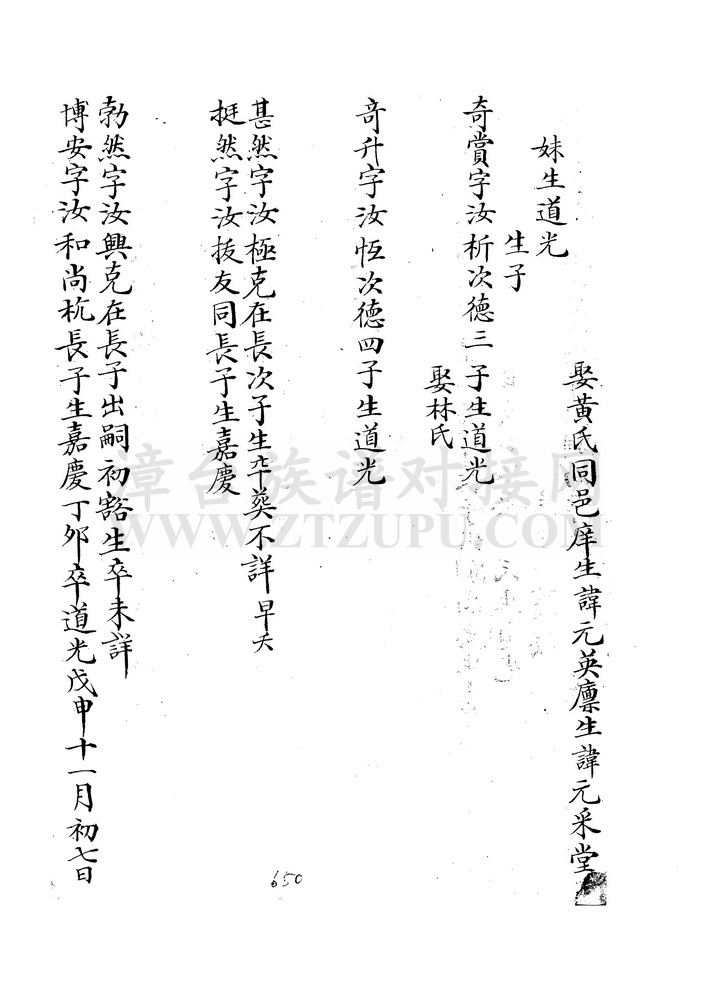 娶黃氏同邑庠生諱元英廩生諱元采堂
妹生道光
生子
奇賞字汝析次德三子生道光
娶林氏
奇升字汝恆次德四子生道光
甚然字汝極克在長次子生卒葬不詳早夭
挺然字汝拔友同長子生嘉慶
勃然字汝興克在長子出嗣初豁生卒未詳
博安字汝和尚杭長子生嘉慶丁卯卒道光戊申十一月初七日
650
漳台族谱对接网
WWW.ZTZUPU.COM